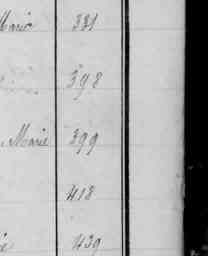 Marie 331
398
, Marie 399
418
ie 439